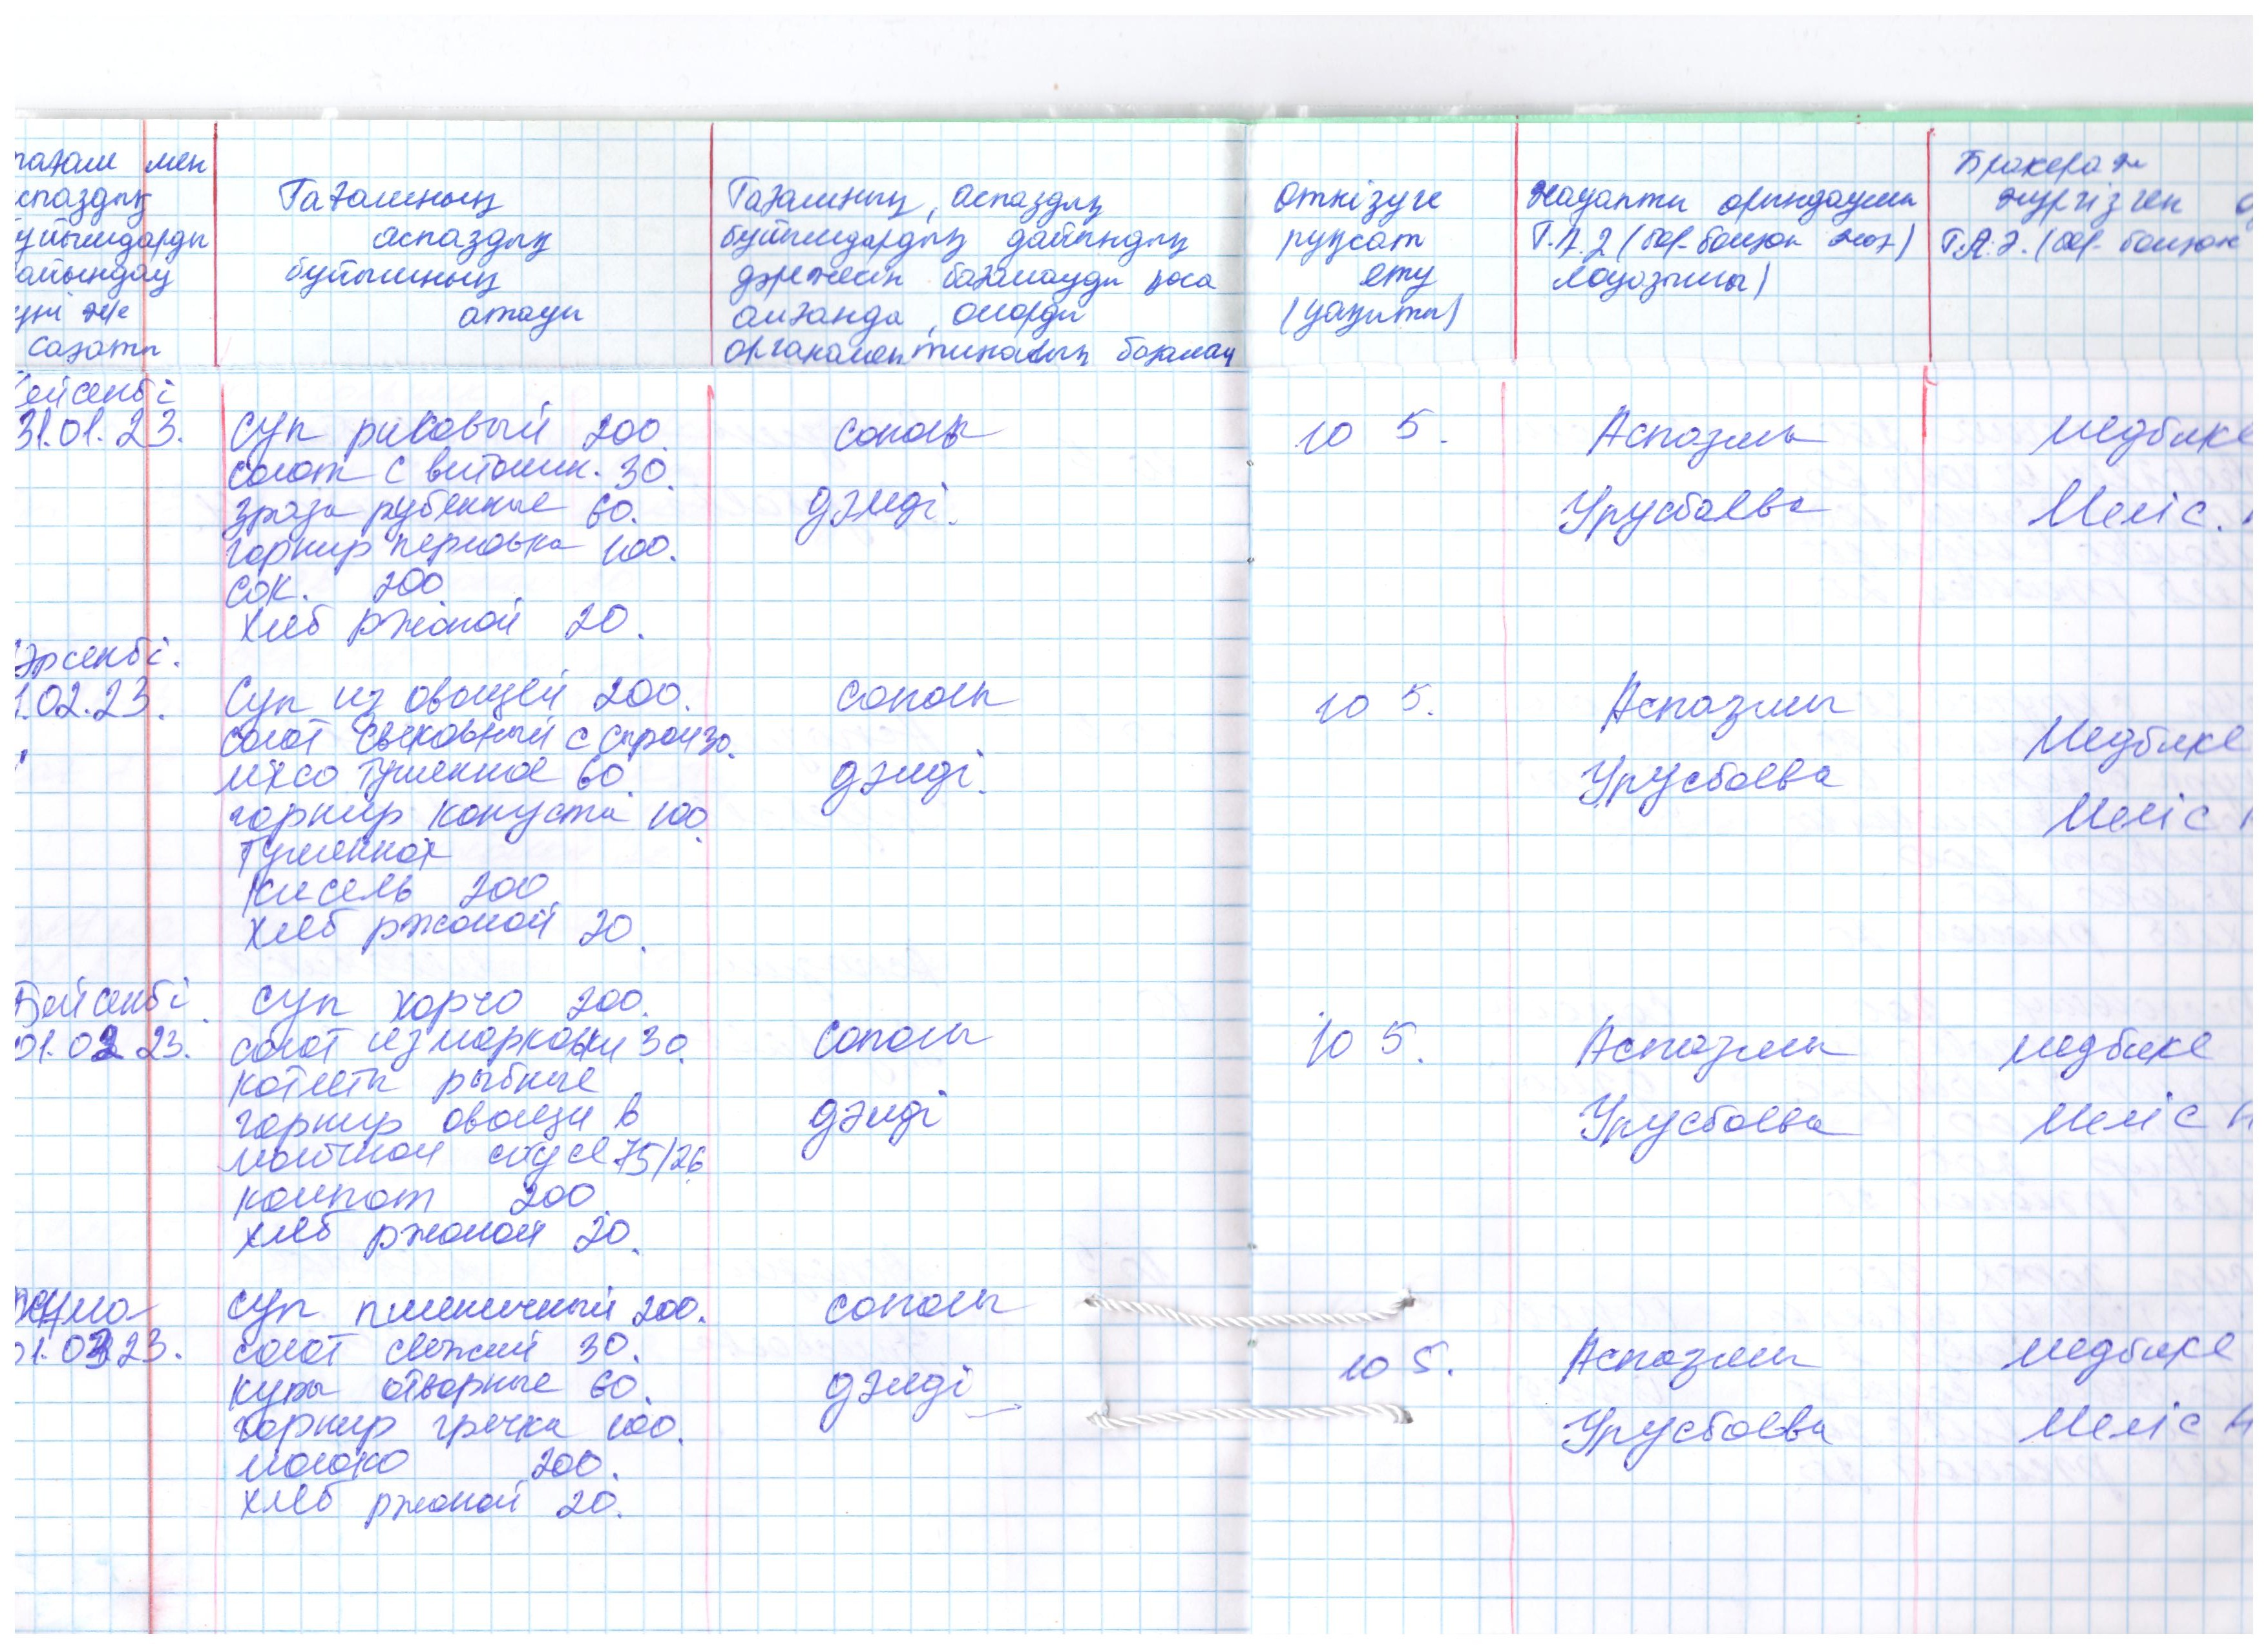 тағам мен
спаздық
ұйымдарды
айындау
үні ж/е
сағаты
Тағамның
аспаздық
бұйымның
атауы
Тағамның, аспаздық
бұйымдардың дайындық
дәрежесін бағалауды қоса
алғанда, оларды
органолептикалық бағалау
Өткізуге
рұқсат
ету
(уақыты)
Жауапты орындаушы
Т.А.Ә (бар болған жағ)
лауазымы)
Бракераж
жүргізген
Т.А.Ә. (бар болған
ейсенбі
31.01.23.
Суп рисовый 200.
салат с витамин. 30.
зразы рубенные 60.
гарнир перловка 100.
сок. 200.
хлеб ржаной 20.
сапалы
дәмді.
10 5.
Аспазшы
Урусбаева
медбике
Меліс.
әрсенбі.
1.02.23.
Суп из овощей 200.
салат свекольный с сыром 30.
мясо тушенное 60.
гарнир капуста 100.
тушенная
кисель 200
хлеб ржаной 20.
сапалы
дәмді.
10 5.
Аспазшы
Урусбаева
Медбике
Меліс
Бейсенбі.
01.02 23.
суп харчо 200.
салат из моркови 30.
котлеты рыбные
гарнир овощи в
молочном соусе 75/26.
компот 200.
хлеб ржаной 20.
сапалы
дәмді
10 5.
Аспазшы
Урусбаева
медбике
Меліс Н
Жұма
01.03 23.
суп пшеничный 200.
салат свежий 30.
куры отворные 60.
гарнир гречка 100.
молоко 200.
хлеб ржаной 20.
сапалы
дәмді
10 5.
Аспазшы
Урусбаева
медбике
Меліс Н